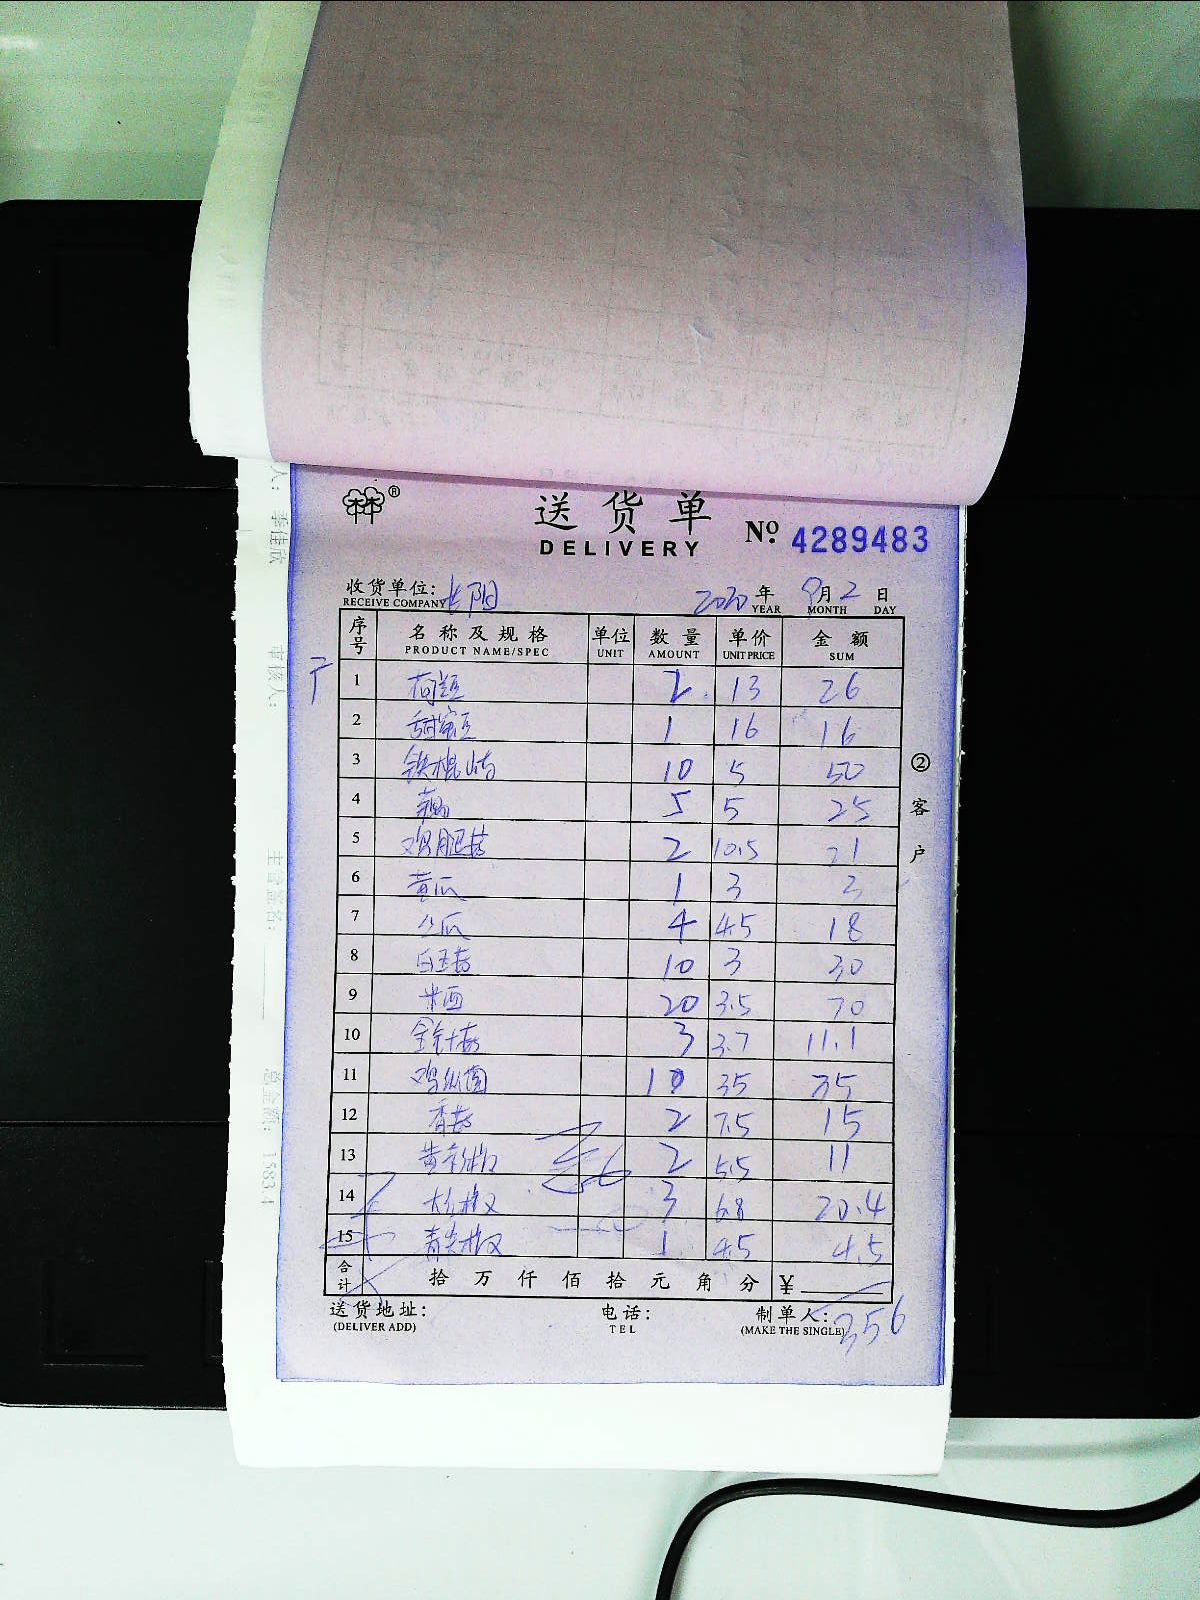 送货单
DELIVERY
Nº 4289483
收货单位: 长阳 2020 年 9月 2 日
RECEIVE COMPANY YEAR MONTH DAY
序号 名称及规格 单位 数量 单价 金额
PRODUCT NAME/SPEC UNIT AMOUNT UNIT PRICE SUM
1 荷豆 2 13 26
2 甜蜜豆 1 16 16
3 铁棍山药 10 5 50
4 5 5 25
5 鸡腿菇 2 10.5 21
6 黄瓜 1 3 3
7 瓜 4 4.5 18
8 白玉菇 10 3 30
9 米西 20 3.5 70
10 金针菇 3 3.7 11.1
11 鸡纵菌 10 35 35
12 香菇 2 7.5 15
13 2 5.5 11
14 3 6.8 20.4
15 青尖椒 1 4.5 4.5
合计 拾 万 仟 佰 拾 元 角 分 ¥
356
送货地址: 电话: 制单人:
(DELIVER ADD) TEL (MAKE THE SINGLE)
②客户
人: 李佳欣
审核人:
主管签名:
总金额: 1583.4